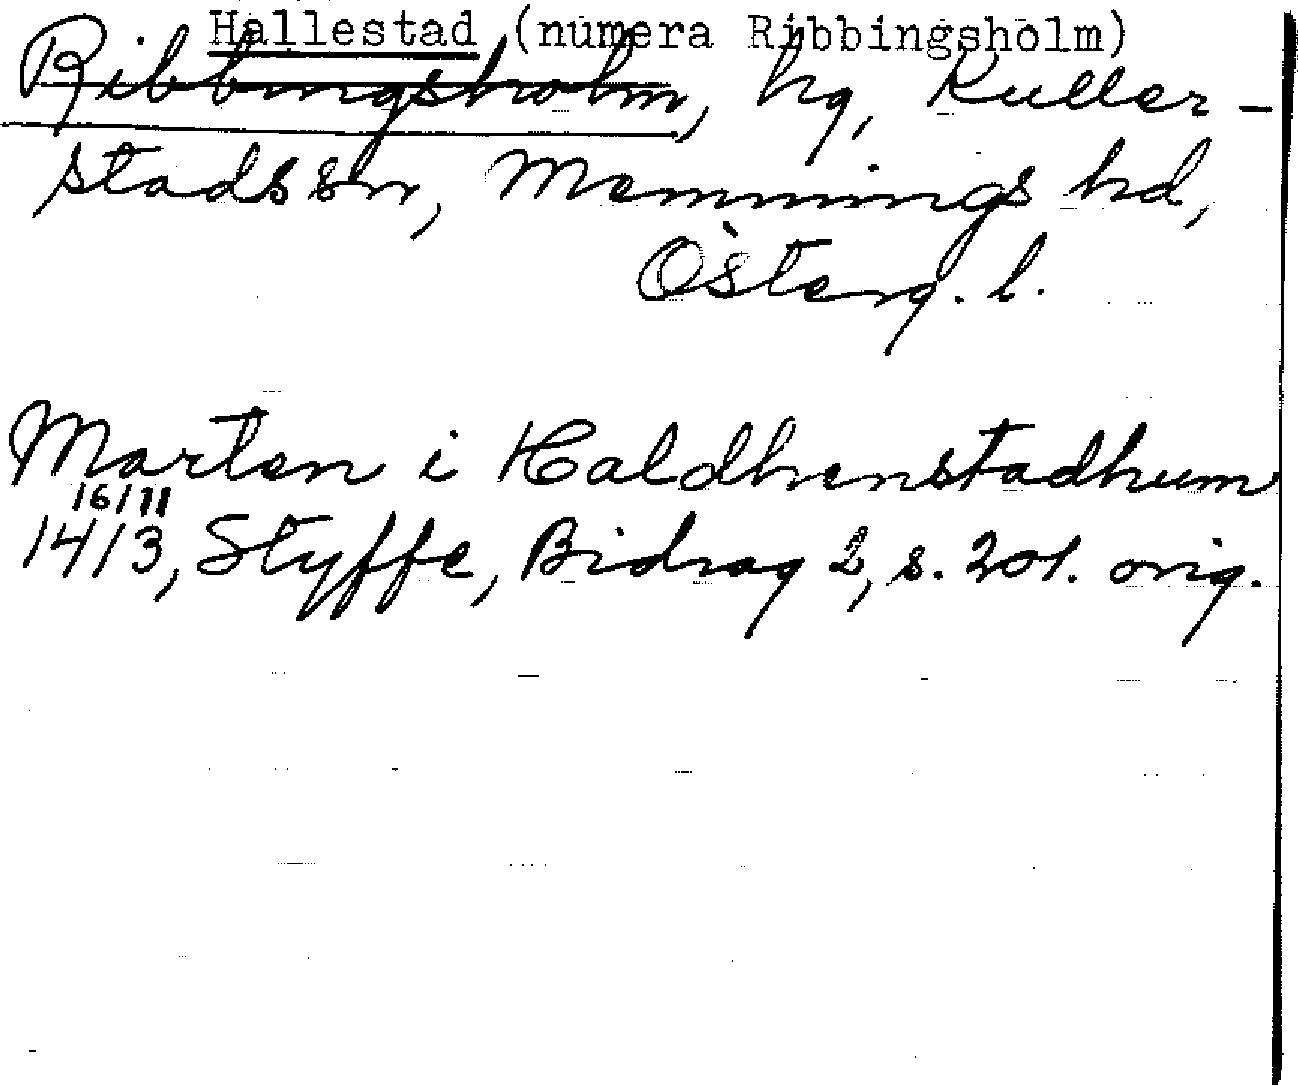 Hallestad (numera Ribbingsholm)
Ribbingsholm, hg, Kuller-
stads sn, Memmings hd,
Österg. l.
Marten i Haldhenstadhum
16/11
1413, Styffe, Bidrag 2, s. 201. orig.